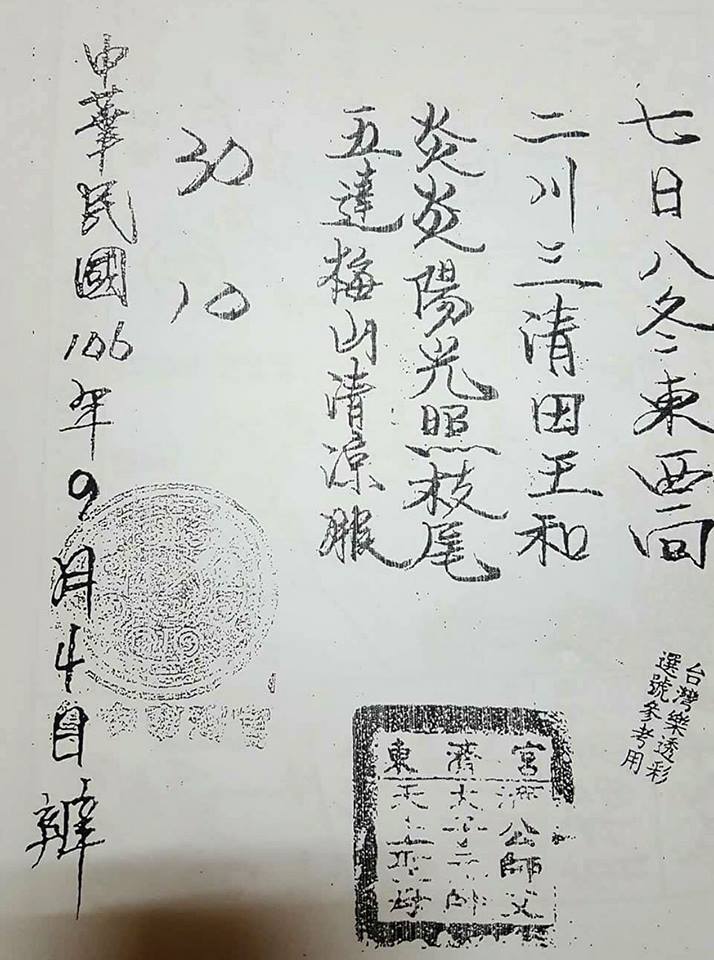 七日八冬東西向
二川三清田王和
炎炎陽光照枝尾
五達梅山清涼服
30 10
中華民國106年9月4日辦
台灣樂透彩
選號參考用
宮濟東
公師父
天上聖母